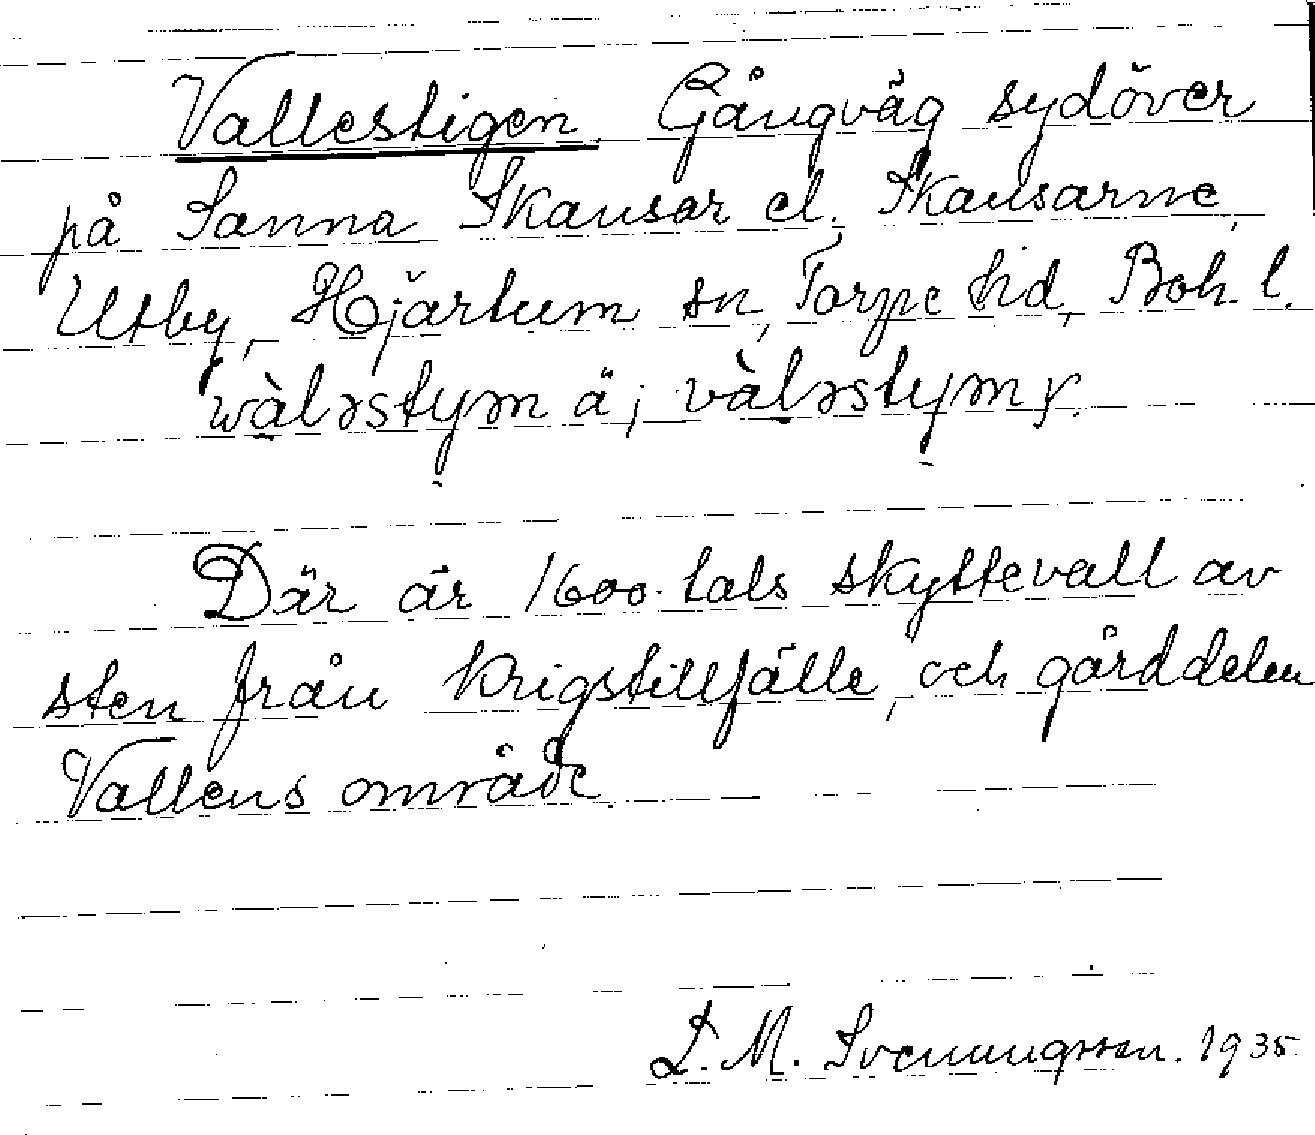 Vallestigen. Gångväg sydöver
på Sanna Skansar el. Skansarne,
Utby, Hjärtum sn, Torpe hd, Boh. l.
wàl̥əstym ä; vàl̥əstym
Där är 1600-tals skyttevall av
sten från krigstillfälle, och gårddelen
Vallens område.
L. M. Svenungsson. 1935